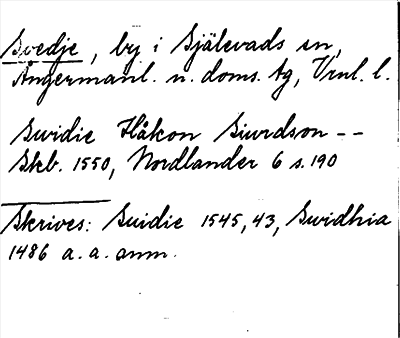 Svedje, by i Själevads sn,
Ångermanl. n. doms. tg, Vrnl. l.
Swidie Håkon Siwrdson --
Skb. 1550, Nordlander 6 s. 190
Skrives: Suidie 1545, 43, Swidhia
1486 a. a. anm.